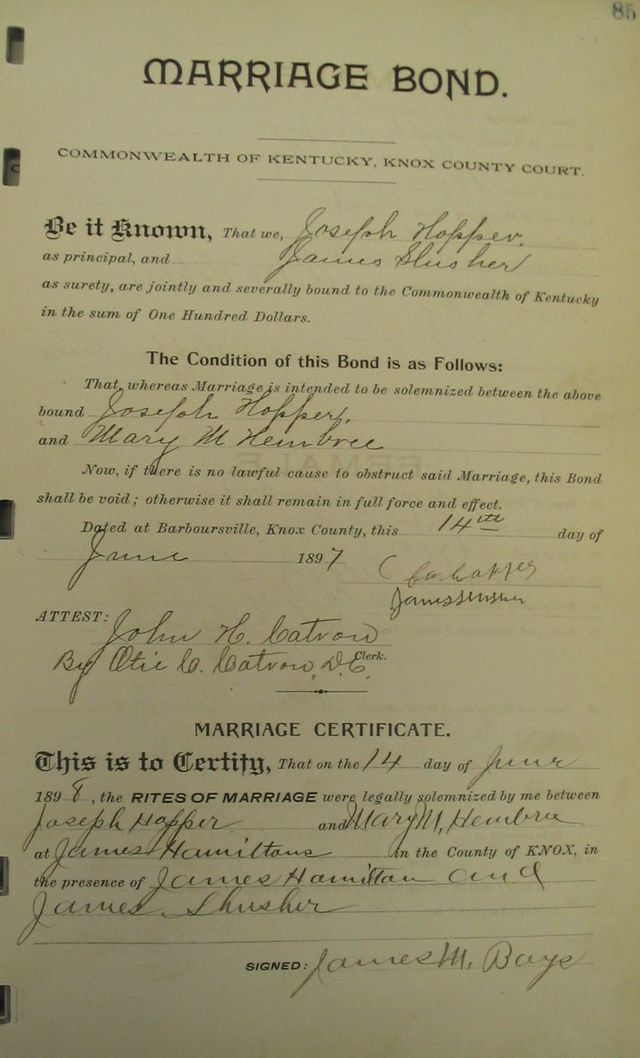 85
MARRIAGE BOND.
COMMONWEALTH OF KENTUCKY, KNOX COUNTY COURT.
Be it Known, That we, Joseph Hopper.
as principal, and James Slusher
as surety, are jointly and severally bound to the Commonwealth of Kentucky
in the sum of One Hundred Dollars.
The Condition of this Bond is as Follows:
That, whereas Marriage is intended to be solemnized between the above
bound Joseph Hopper,
and Mary M Hembree
Now, if there is no lawful cause to obstruct said Marriage, this Bond
shall be void; otherwise it shall remain in full force and effect.
Dated at Barboursville, Knox County, this 14th day of
June 1897
James Slusher
ATTEST: John H. Catron
By Otie C. Catron, D.C. Clerk.
MARRIAGE CERTIFICATE.
This is to Certify, That on the 14 day of June
1898, the RITES OF MARRIAGE were legally solemnized by me between
Joseph Hopper and Mary M, Hembree
at James Hamiltons in the County of KNOX, in
the presence of James Hamilton and
James Slusher
SIGNED: James M. Bays